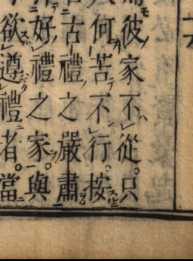 彼家不從只
何苦不行按
古禮之嚴肅
好禮之家與
欲遵禮者當